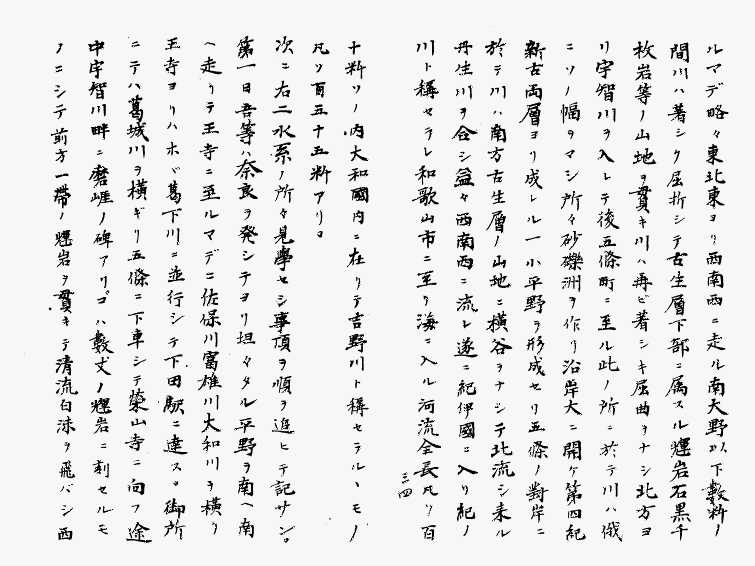 ルマデ略々東北東ヨリ西南西ニ走ル南大野以下數粁ノ
間川ハ著シク屈折シテ古生層下部ニ属スル輝岩石黒千
枚岩等ノ山地ヲ貫キ川ハ再ビ著シキ屈曲ヲナシ北方ヨ
リ宇智川ヲ入レテ後五條町ニ至ル此ノ所ニ於テ川ハ俄
ニソノ幅ヲマシ所々砂礫洲ヲ作リ沿岸大ニ開ケ第四紀
新古両層ヨリ成レル一小平野ヲ形成セリ五條ノ對岸ニ
於テ川ハ南方古生層ノ山地ニ横谷ヲナシテ北流シ来ル
丹生川ヲ合シ益々西南西ニ流レ遂ニ紀伊國ニ入リ紀ノ
川ト稱セラレ和歌山市ニ至リ海ニ入ル河流全長凡ソ百
三四
十粁ソノ内大和國内ニ在リテ吉野川ト稱セラルヽモノ
凡ソ百五十五粁アリ。
次ニ右二水系ノ所々見學セシ事項ヲ順ヲ追ヒテ記サン。
第一日吾等ハ奈良ヲ発シテヨリ坦々タル平野ヲ南ヘ南
ヘ走リテ王寺ニ至ルマデニ佐保川富雄川大和川ヲ横リ
王寺ヨリハホヾ葛下川ニ並行シテ下田駅ニ達ス。御所
ニテハ葛城川ヲ横ギリ五條ニ下車シテ榮山寺ニ向フ途
中宇智川畔ニ磨崖ノ碑アリ。コハ數丈ノ輝岩ニ刻セルモ
ノニシテ前方一帶ノ輝岩ヲ貫キテ清流白沫ヲ飛バシ西